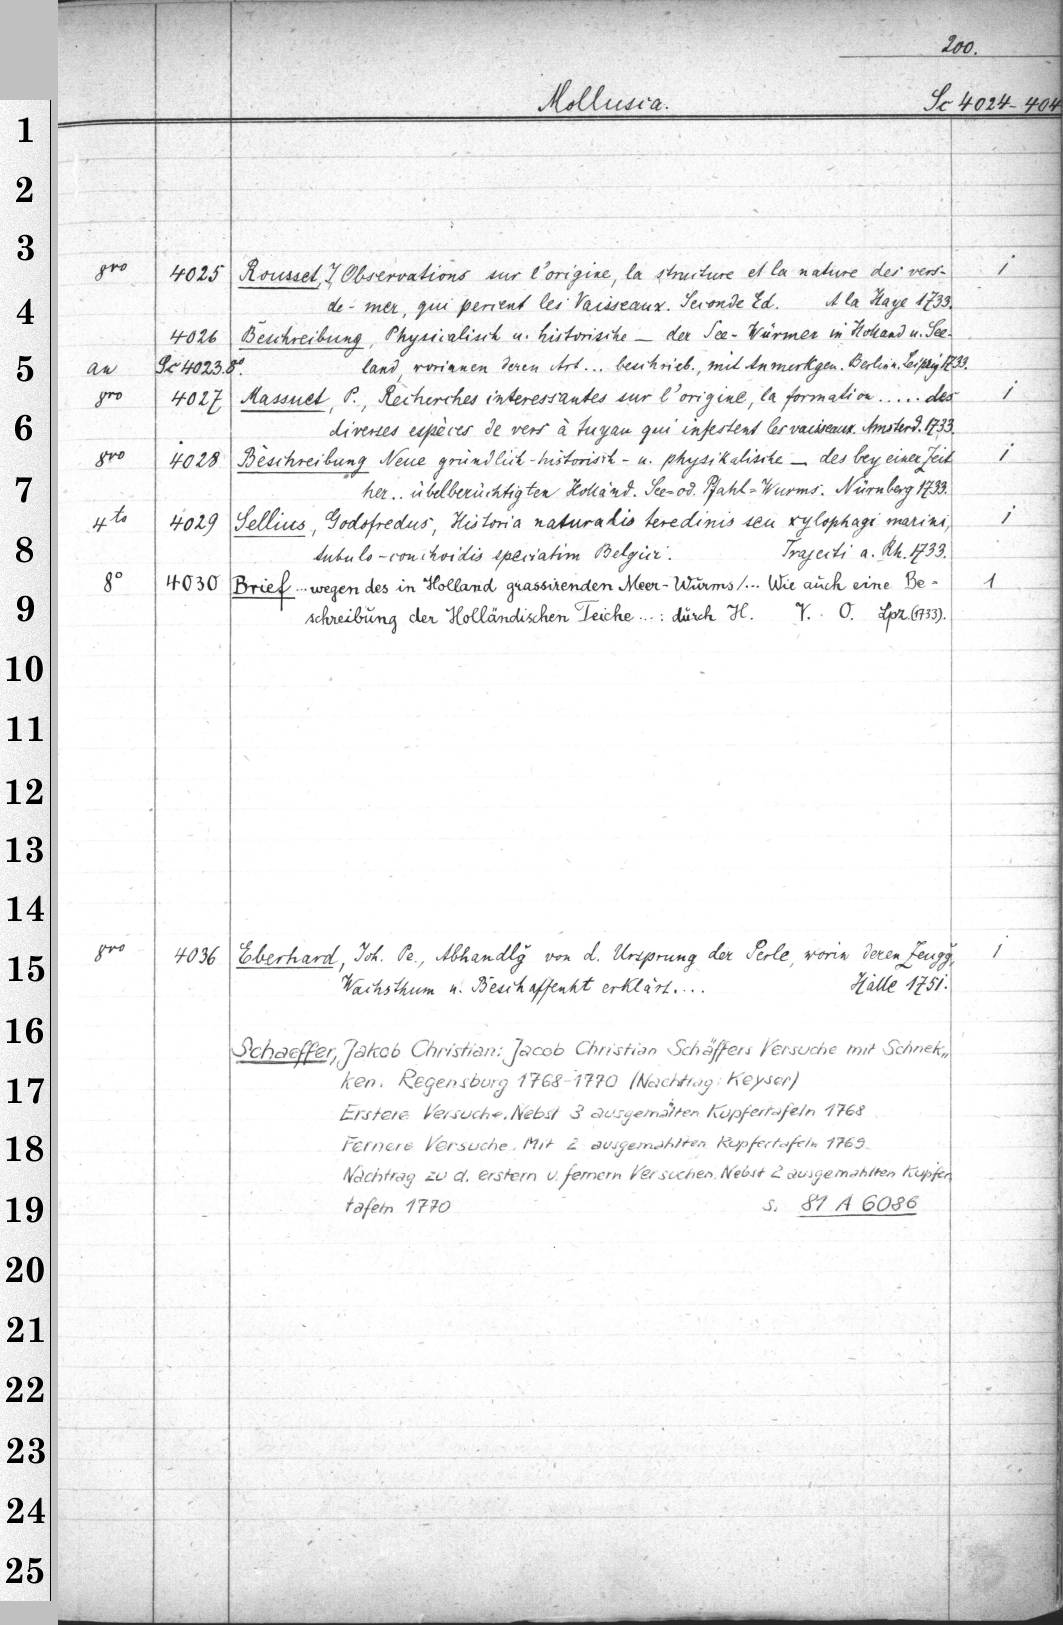 200.
Mollusca. Sc 4024-404
1
2
3
8vo 4025 Rousset, J, Observations sur l'origine, la structure et la nature des vers- 1
4
de-mer, qui percent les Vaisseaux. Seconde Ed. A la Haye 1733.
4026 Beschreibung, Physicalisch u. historische — der See-Würmer in Holland u. See-
5
an Sc 4023.8°. land, worinnen deren Art... beschrieb., mit Anmerkgen. Berlin u. Leipzig 1733.
8vo 4027 Massuet, P., Recherches interessantes sur l'origine, la formation ..... des 1
6
diverses espèces de vers à tuyau qui infestent les vaisseaux. Amsterd. 1733.
8vo 4028 Beschreibung Neue gründlich-historisch- u. physikalische — des bey einer Zeit 1
7
her.. übelberüchtigten Holländ. See= od. Pfahl=Wurms. Nürnberg 1733.
4to 4029 Sellius, Godofredus, Historia naturalis teredinis seu xylophagi marini, 1
8
tubulo-conchoidis speciatim Belgici. Trajecti a. Rh. 1733.
8° 4030 Brief ... wegen des in Holland grassirenden Meer-Wurms/... Wie auch eine Be- 1
9
schreibung der Holländischen Teiche ...: durch H. V. O. Lpz. (1733).
10
11
12
13
14
8vo 4036 Eberhard, Joh. Pe., Abhandlg von d. Ursprung der Perle, worin deren Zeugg, 1
15
Wachsthum u. Beschaffenht erklärt.... Halle 1751.
16
Schaeffer, Jakob Christian: Jacob Christian Schäffers Versuche mit Schnek„
17
ken. Regensburg 1768-1770 (Nachtrag: Keyser)
Erstere Versuche. Nebst 3 ausgemalten Kupfertafeln 1768
18
Fernere Versuche. Mit 2 ausgemahlten Kupfertafeln 1769
Nachtrag zu d. erstern u. fernern Versuchen. Nebst 2 ausgemahlten Kupfer
19
tafeln 1770 s. 81 A 6086
20
21
22
23
24
25